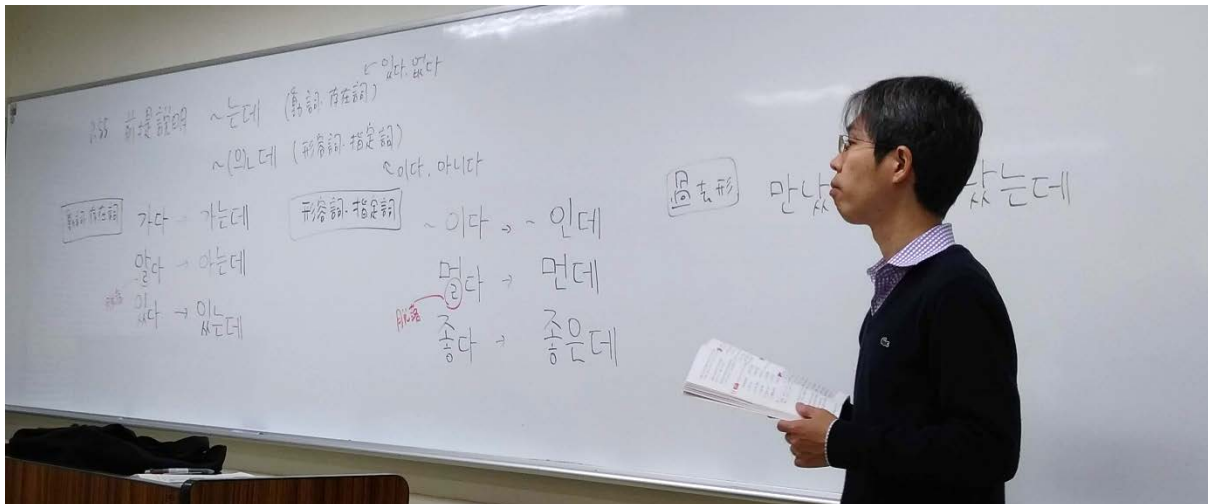 ← 있다, 없다
P.55 前提說明 ~는데 (動詞·存在詞)
~(으)ㄴ데 (形容詞·指定詞)
이다, 아니다
動詞·存在詞
가다 → 가는데
알다 → 아는데
脫落
있다 → 있는데
形容詞·指定詞
~이다 → ~인데
멀다 → 먼데
ㄹ
脫落
좋다 → 좋은데
過去形
만났 났는데